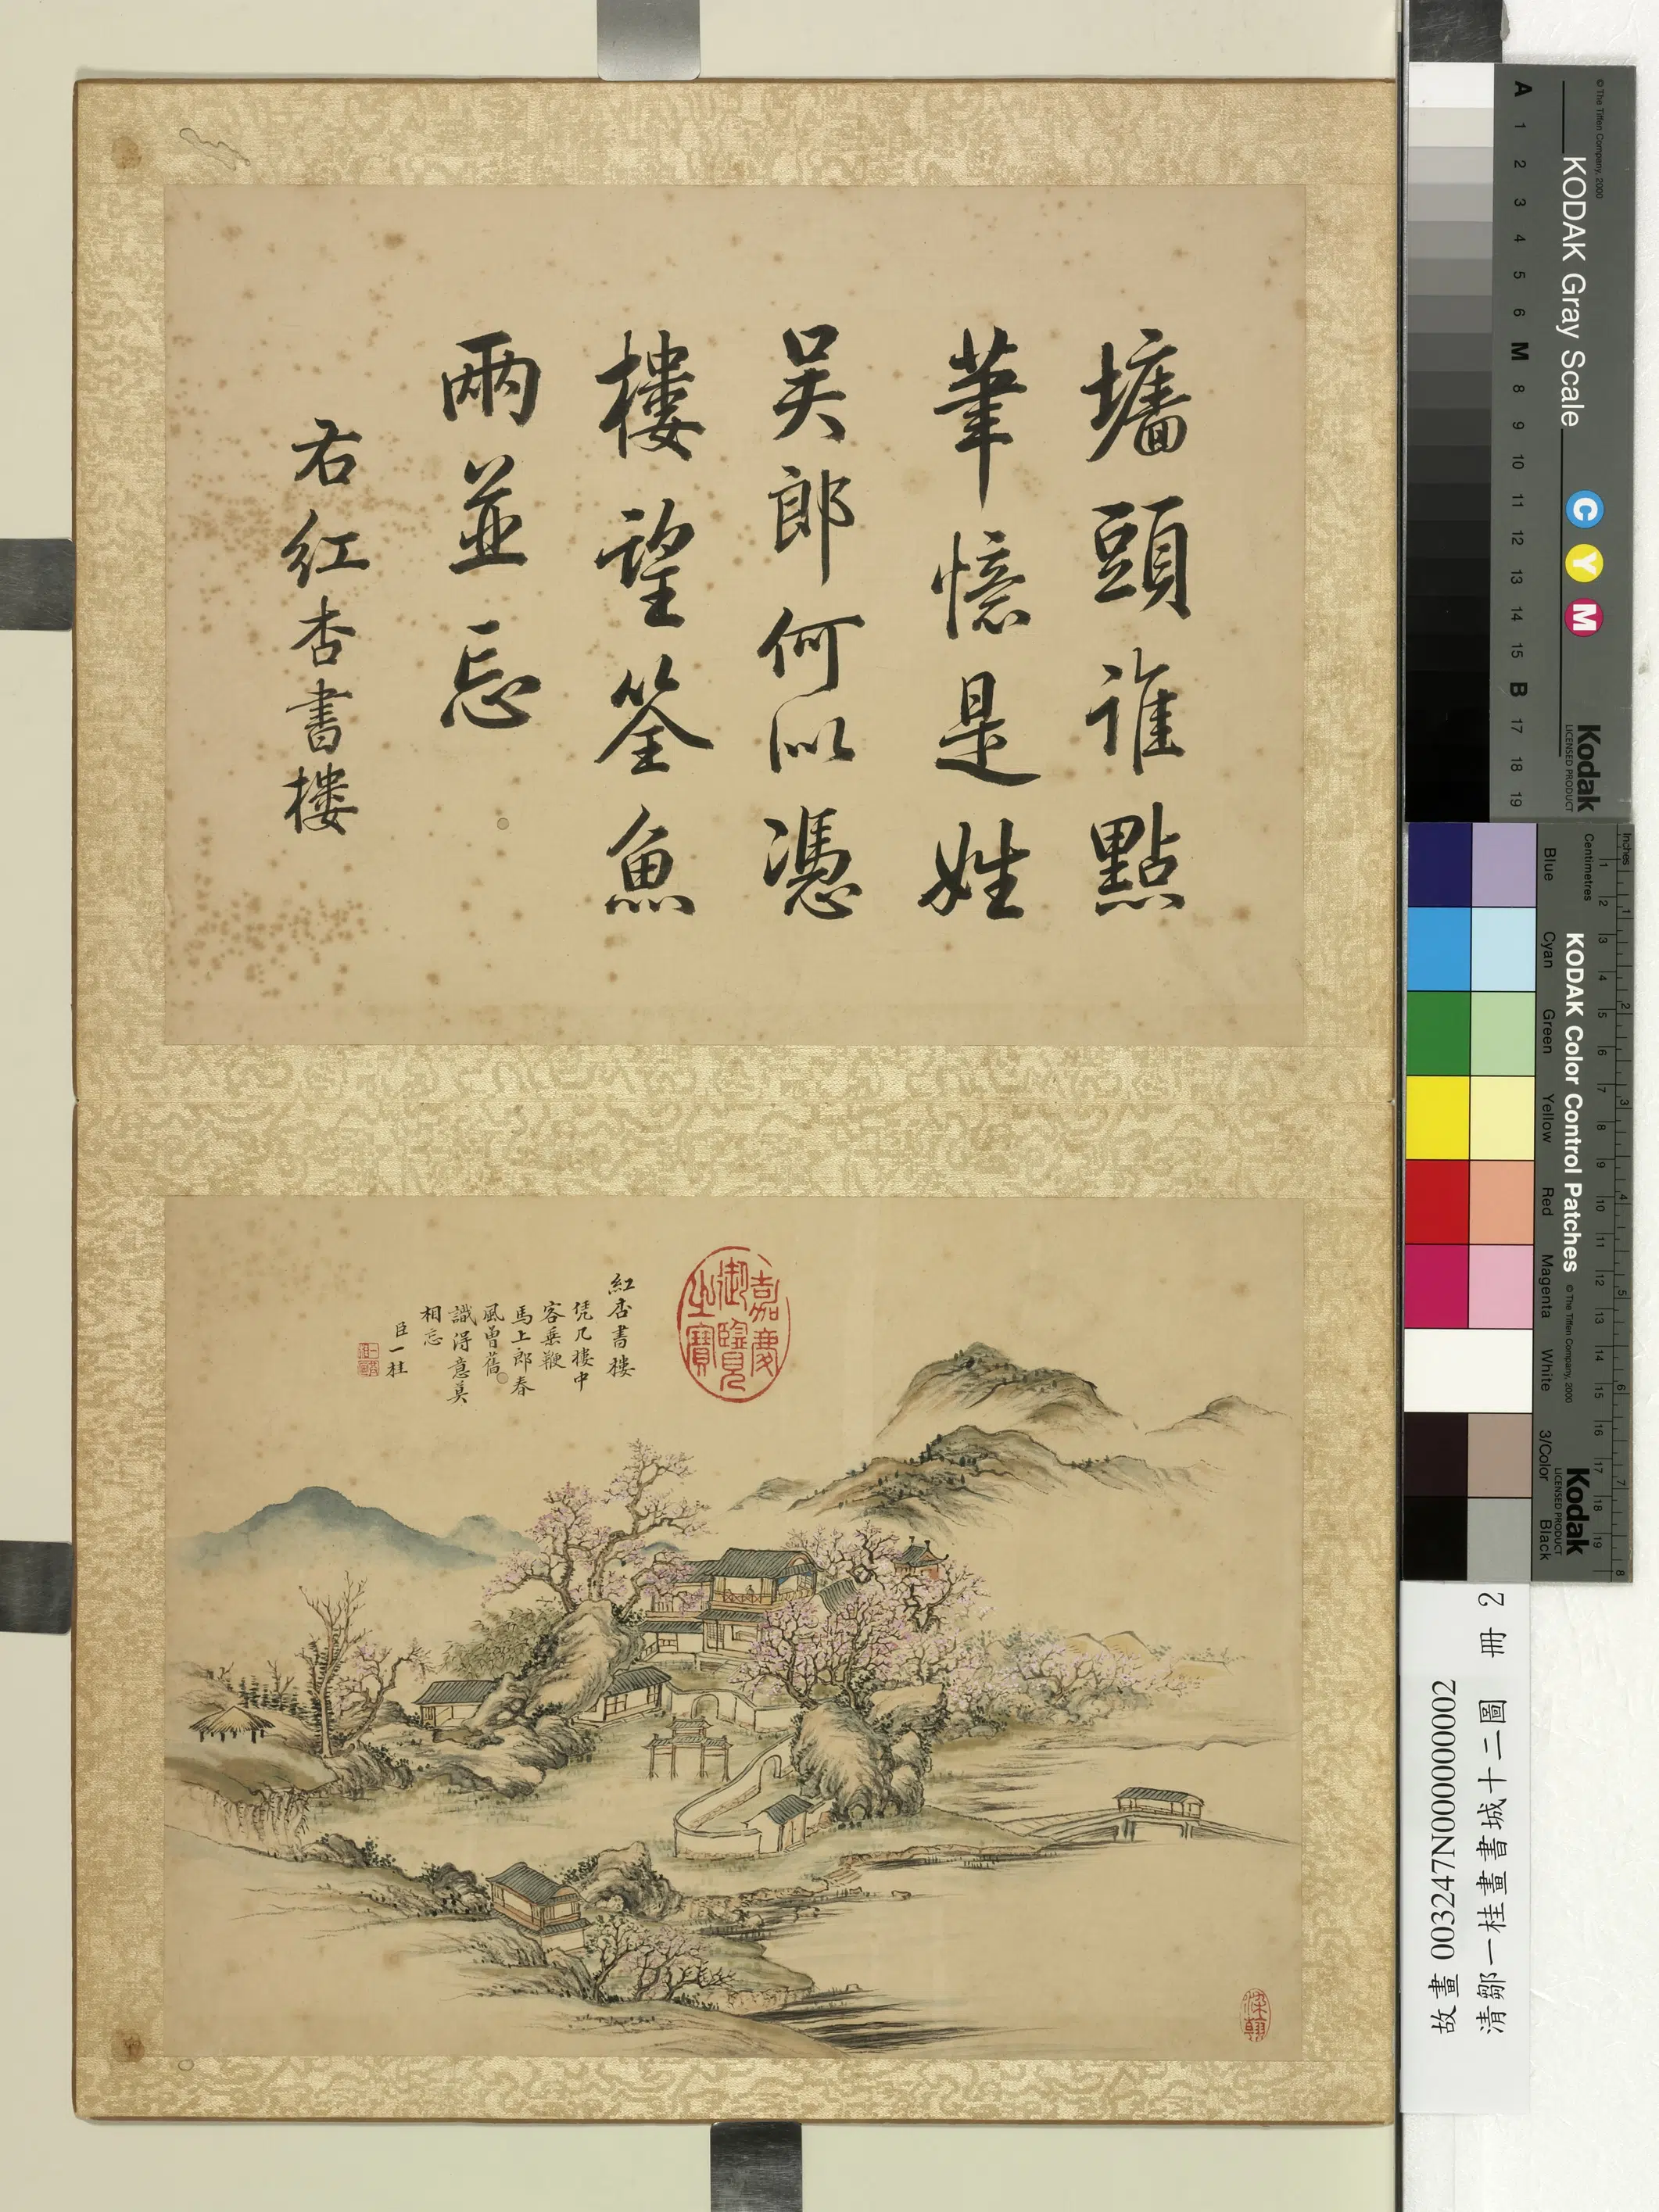 墻頭誰點
筆憶是姓
吴郎何以憑
樓望筌魚
兩並忘
右紅杏書樓
嘉慶
御覽
之寶
紅杏書樓
凭几樓中
客垂鞭
馬上郎春
風曾舊
識得意莫
相忘
臣一桂
故畫 003247N000000002
清鄒一桂畫書城十二圖 冊 2
© The Tiffen Company, 2000
KODAK Gray Scale
Kodak
LICENSED PRODUCT
A 1 2 3 4 5 6 M 8 9 10 11 12 13 14 15 B 17 18 19
C Y M
KODAK Color Control Patches
© The Tiffen Company, 2000
Kodak
LICENSED PRODUCT
Inches 1 2 3 4 5 6 7 8
Centimetres 1 2 3 4 5 6 7 8 9 10 11 12 13 14 15 16 17 18 19
Blue Cyan Green Yellow Red Magenta White 3/Color Black